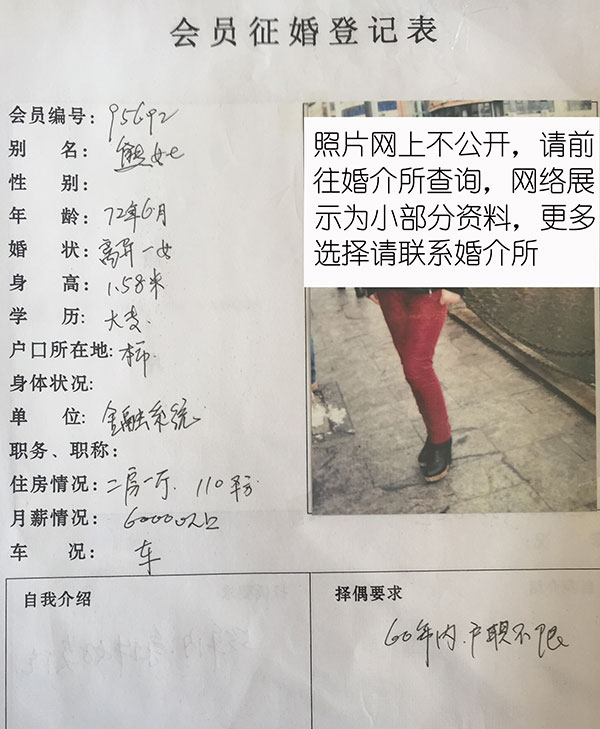 会员征婚登记表
会员编号：95692
别 名：熊女士
性 别：
年 龄：72年6月
婚 状：离异一女
身 高：1.58米
学 历：大专
户口所在地：本市
身体状况：
单 位：金融系统
职务、职称：
住房情况：二房一厅．110平方
月薪情况：6000以上
车 况：车
照片网上不公开，请前
往婚介所查询，网络展
示为小部分资料，更多
选择请联系婚介所
自我介绍
择偶要求
60年内．户职不限